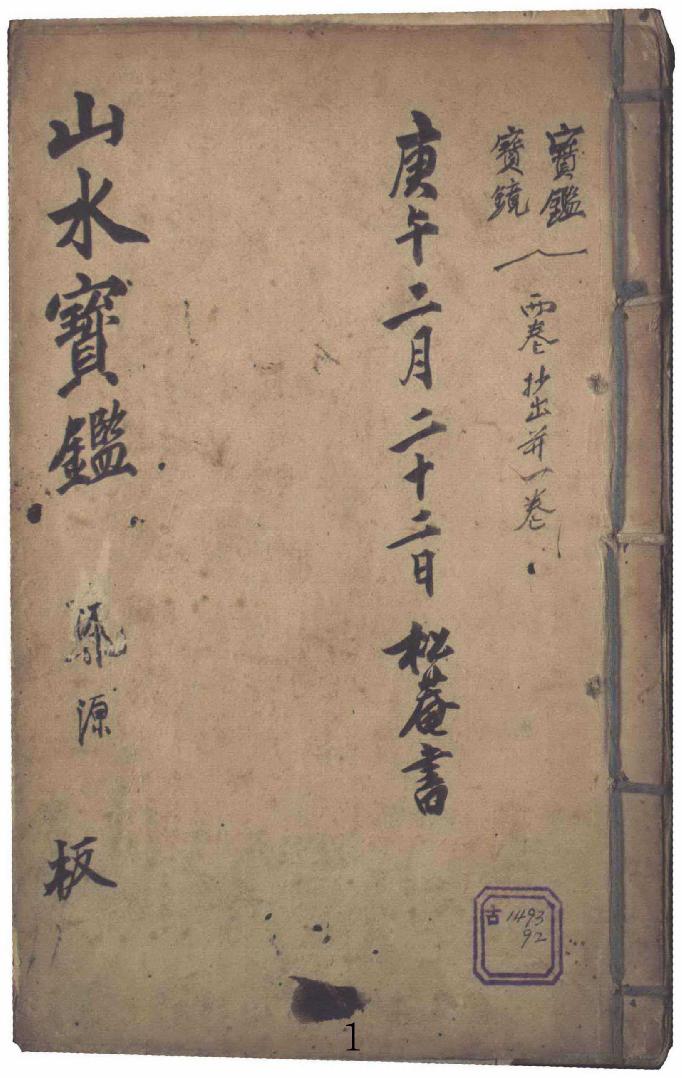 寶鑑
寶鏡
両卷抄出并一卷
庚午二月二十二日 松菴書
山水寶鑑
源
板
古1493
92
1